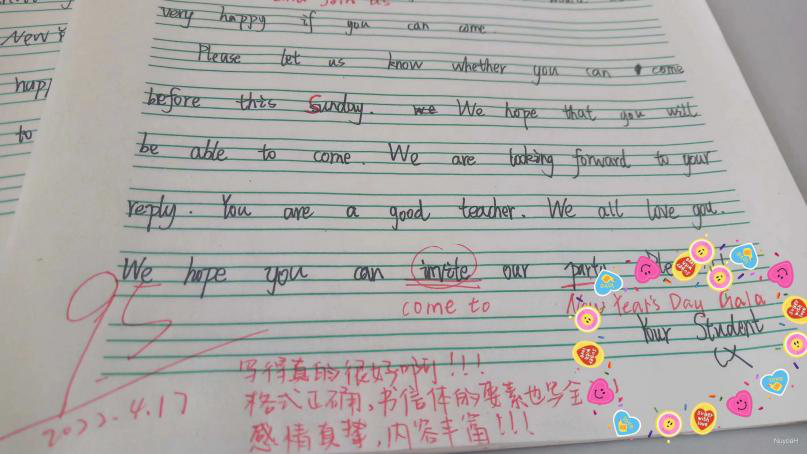 New Y
happ
to
very happy if you can come.
Please let us know whether you can come
before this Sunday. we We hope that you will
be able to come. We are looking forward to your
reply. You are a good teacher. We all love you.
We hope you can invite our party
come to New Year's Day Gala
Your Student
95
写得真的很好啊!!!
格式正确,书信体的要素也写全
感情真挚,内容丰富!!!
2022.4.17
NuyoaH